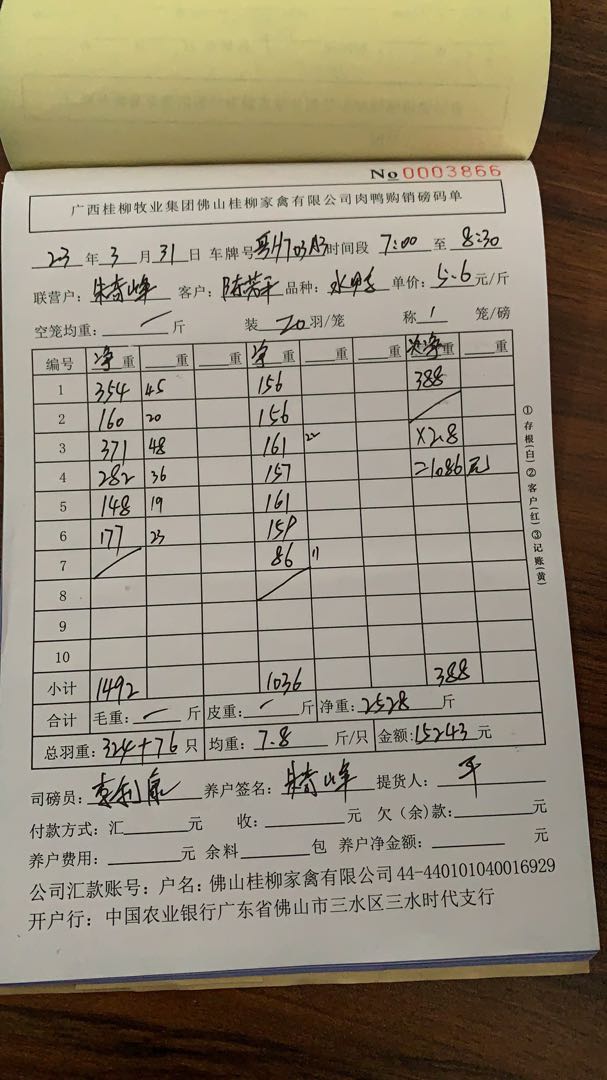 No 0003866
广西桂柳牧业集团佛山桂柳家禽有限公司肉鸭购销磅码单
23 年 3 月 31 日 车牌号 时间段 7:00 至 8:30
联营户: 朱奇峰 客户: 陈芳平 品种: 水鸭 单价: 5.6 元/斤
空笼均重: / 斤 装 20 羽/笼 称 1 笼/磅
编号 净重 重 重 净重 重 重 次净重 重
1 354 45 156 388
2 160 20 156
3 371 48 161 22 ×2.8
4 282 36 157 =1086元
5 148 19 161
6 177 23 159
7 86 11
8
9
10
小计 1492 1036 388
合计 毛重: 斤 皮重: 斤 净重: 2528 斤
总羽重: 324+76 只 均重: 7.8 斤/只 金额: 15243 元
司磅员: 养户签名: 朱奇峰 提货人: 平
付款方式: 汇 元 收: 元 欠(余)款: 元
养户费用: 元 余料 包 养户净金额: 元
公司汇款账号: 户名: 佛山桂柳家禽有限公司 44-440101040016929
开户行: 中国农业银行广东省佛山市三水区三水时代支行
①存根(白)②客户(红)③记账(黄)